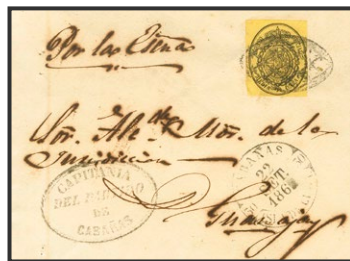 Por las Esqnas
Sor. Alc.de Mor. de la
Jurisdiccion
CAPITANIA
DEL PARTIDO
DE
CABAÑAS
CABAÑAS
22
SET.
186
Guanajay